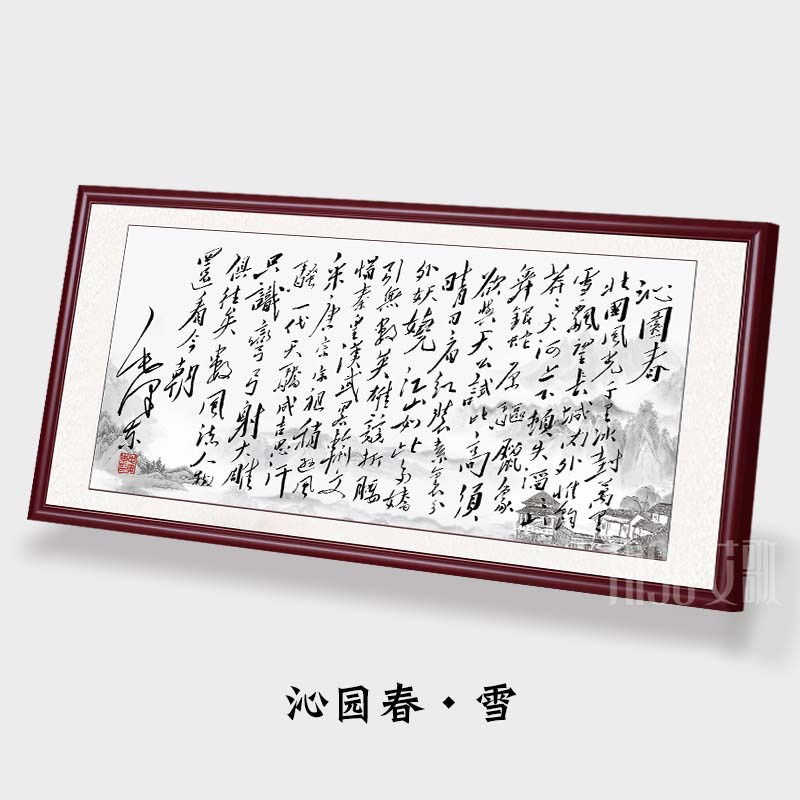 沁園春
北國風光千里冰封萬里
雪飄望長城內外惟餘
莽〻大河上下頓失滔〻山
舞銀蛇原驅臘象
欲與天公試比高須
晴日看紅裝素裹分
外妖嬈江山如此多嬌
引無數英雄競折腰
惜秦皇漢武略輸文
采唐宗宋祖稍遜風
騷一代天驕成吉思汗
只識彎弓射大雕
俱往矣數風流人物
還看今朝
毛澤東
沁园春·雪